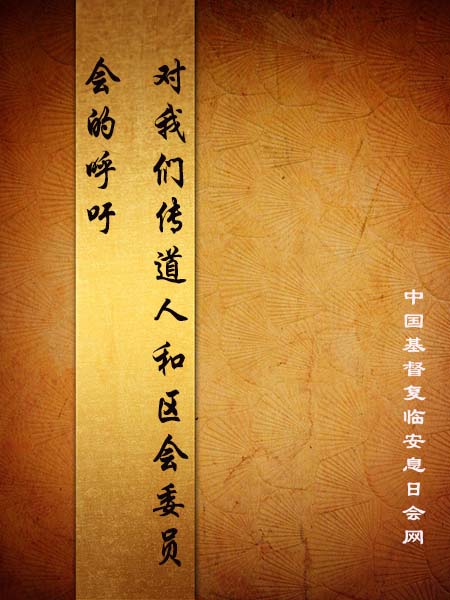 对我们传道人和区会委员
会的呼吁
中国基督复临安息日会网